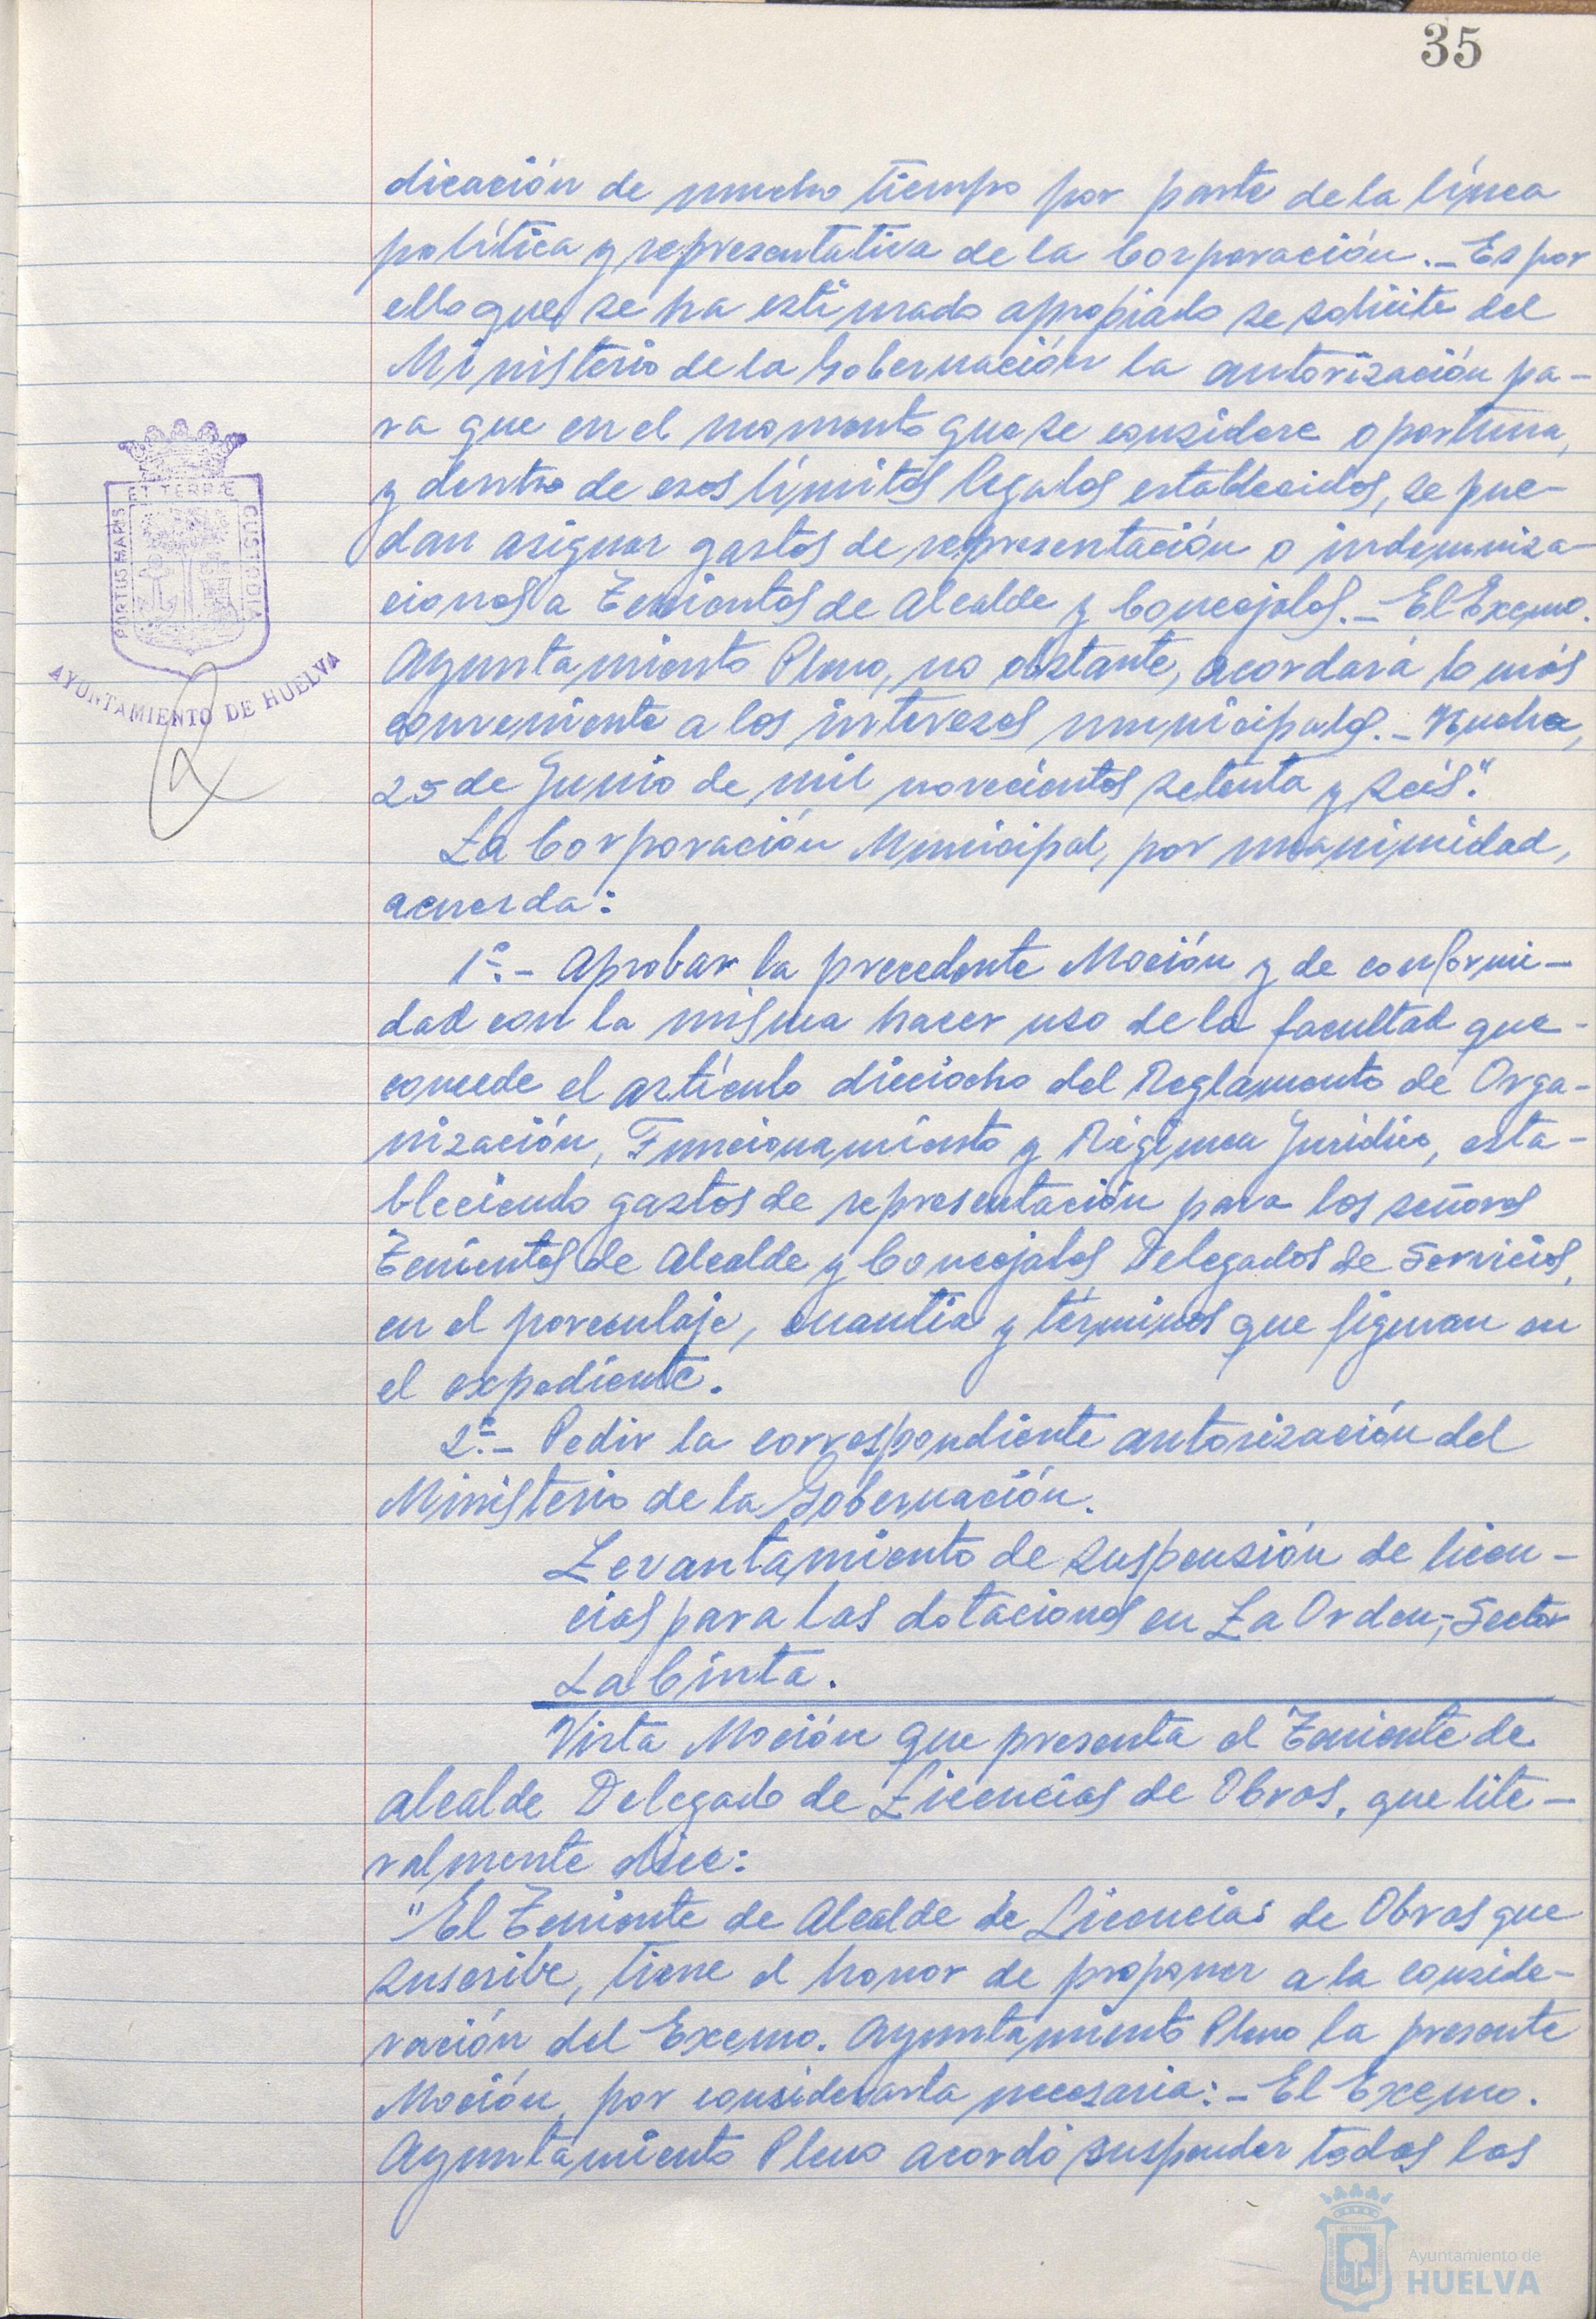 35
dicación de mucho tiempo por parte de la línea
política y representativa de la Corporación.- Es por
ello que se ha estimado apropiado se solicite del
Ministerio de la Gobernación la autorización pa-
ra que en el momento que se considere oportuno,
y dentro de esos límites legales establecidos, se pue-
dan asignar gastos de representación o indemniza-
ciones a Tenientes de Alcalde y Concejales.- El Excmo.
Ayuntamiento Pleno, no obstante, acordará lo más
conveniente a los intereses municipales.- Huelva,
25 de Junio de mil novecientos setenta y seis."
La Corporación Municipal, por unanimidad,
acuerda:
1º.- Aprobar la precedente Moción y de conformi-
dad con la misma hacer uso de la facultad que
concede el artículo dieciocho del Reglamento de Orga-
nización, Funcionamiento y Régimen Jurídico, esta-
bleciendo gastos de representación para los señores
Tenientes de Alcalde y Concejales Delegados de Servicios,
en el porcentaje, cuantía y términos que figuran en
el expediente.
2º.- Pedir la correspondiente autorización del
Ministerio de la Gobernación.
Levantamiento de suspensión de licen-
cias para las dotaciones en La Orden, Sector
La Cinta.
Vista Moción que presenta el Teniente de
Alcalde Delegado de Licencias de Obras, que lite-
ralmente dice:
"El Teniente de Alcalde de Licencias de Obras que
suscribe, tiene el honor de proponer a la conside-
ración del Excmo. Ayuntamiento Pleno la presente
Moción, por considerarla necesaria:- El Excmo.
Ayuntamiento Pleno acordó suspender todas las
PORTUS MARIS ET TERRÆ CUSTODIA
AYUNTAMIENTO DE HUELVA
Ayuntamiento de
HUELVA